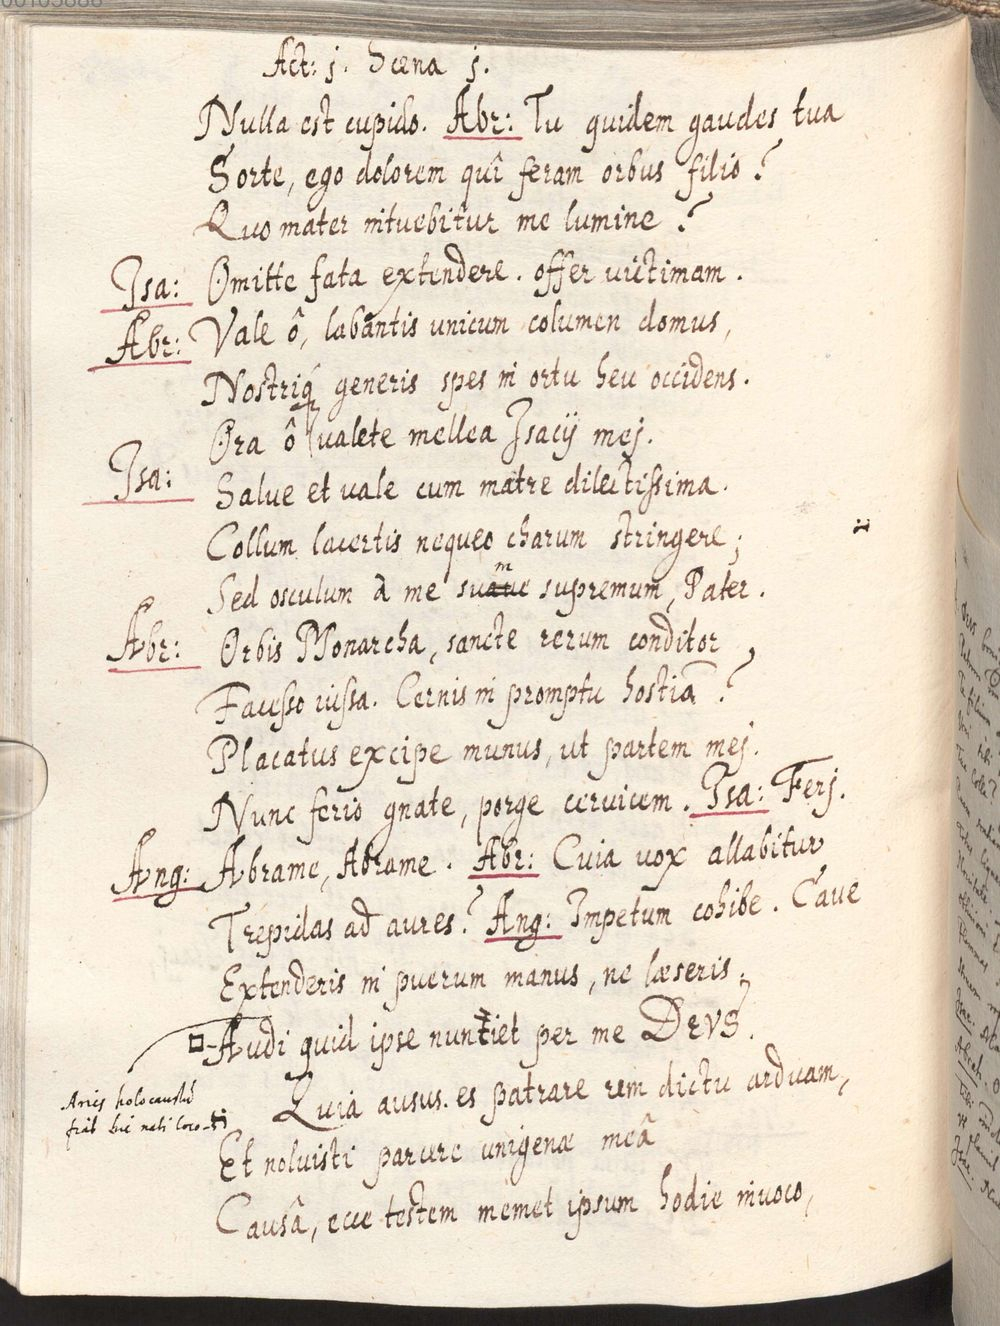 Act: j. Scena j.
Nulla est cupido. Abr: Tu quidem gaudes tua
Sorte, ego dolorem quî feram orbus filio?
Quo mater intuebitur me lumine?
Isa: Omitte fata extendere. offer uictimam.
Abr: Vale ô, labantis unicum columen domus,
Nostriq́ generis spes in ortu heu occidens.
Ora ô valete mellea Isacij mej.
Isa: Salue et uale cum matre dilectissima.
Collum lacertis nequeo charum stringere;
Sed osculum à me sum supremum, Pater.
Abr: Orbis Monarcha, sancte rerum conditor,
Facesso iussa. Cernis in promptu hostiā?
Placatus excipe munus, ut partem mej.
Nunc ferio gnate, porge ceruicem. Isa: Ferj.
Ang: Abrame, Abrame. Abr: Cuia uox allabitur
Trepidas ad aures? Ang: Impetum cohibe. Caue
Extenderis in puerum manus, ne læseris;
Audi quid ipse nuntiet per me DEVS.
Aries holocaustū
fiāt hic nati loco
Quia ausus es patrare rem dictu arduam,
Et noluisti parcere unigenæ meâ
Causâ, ecce testem memet ipsum hodie inuoco,